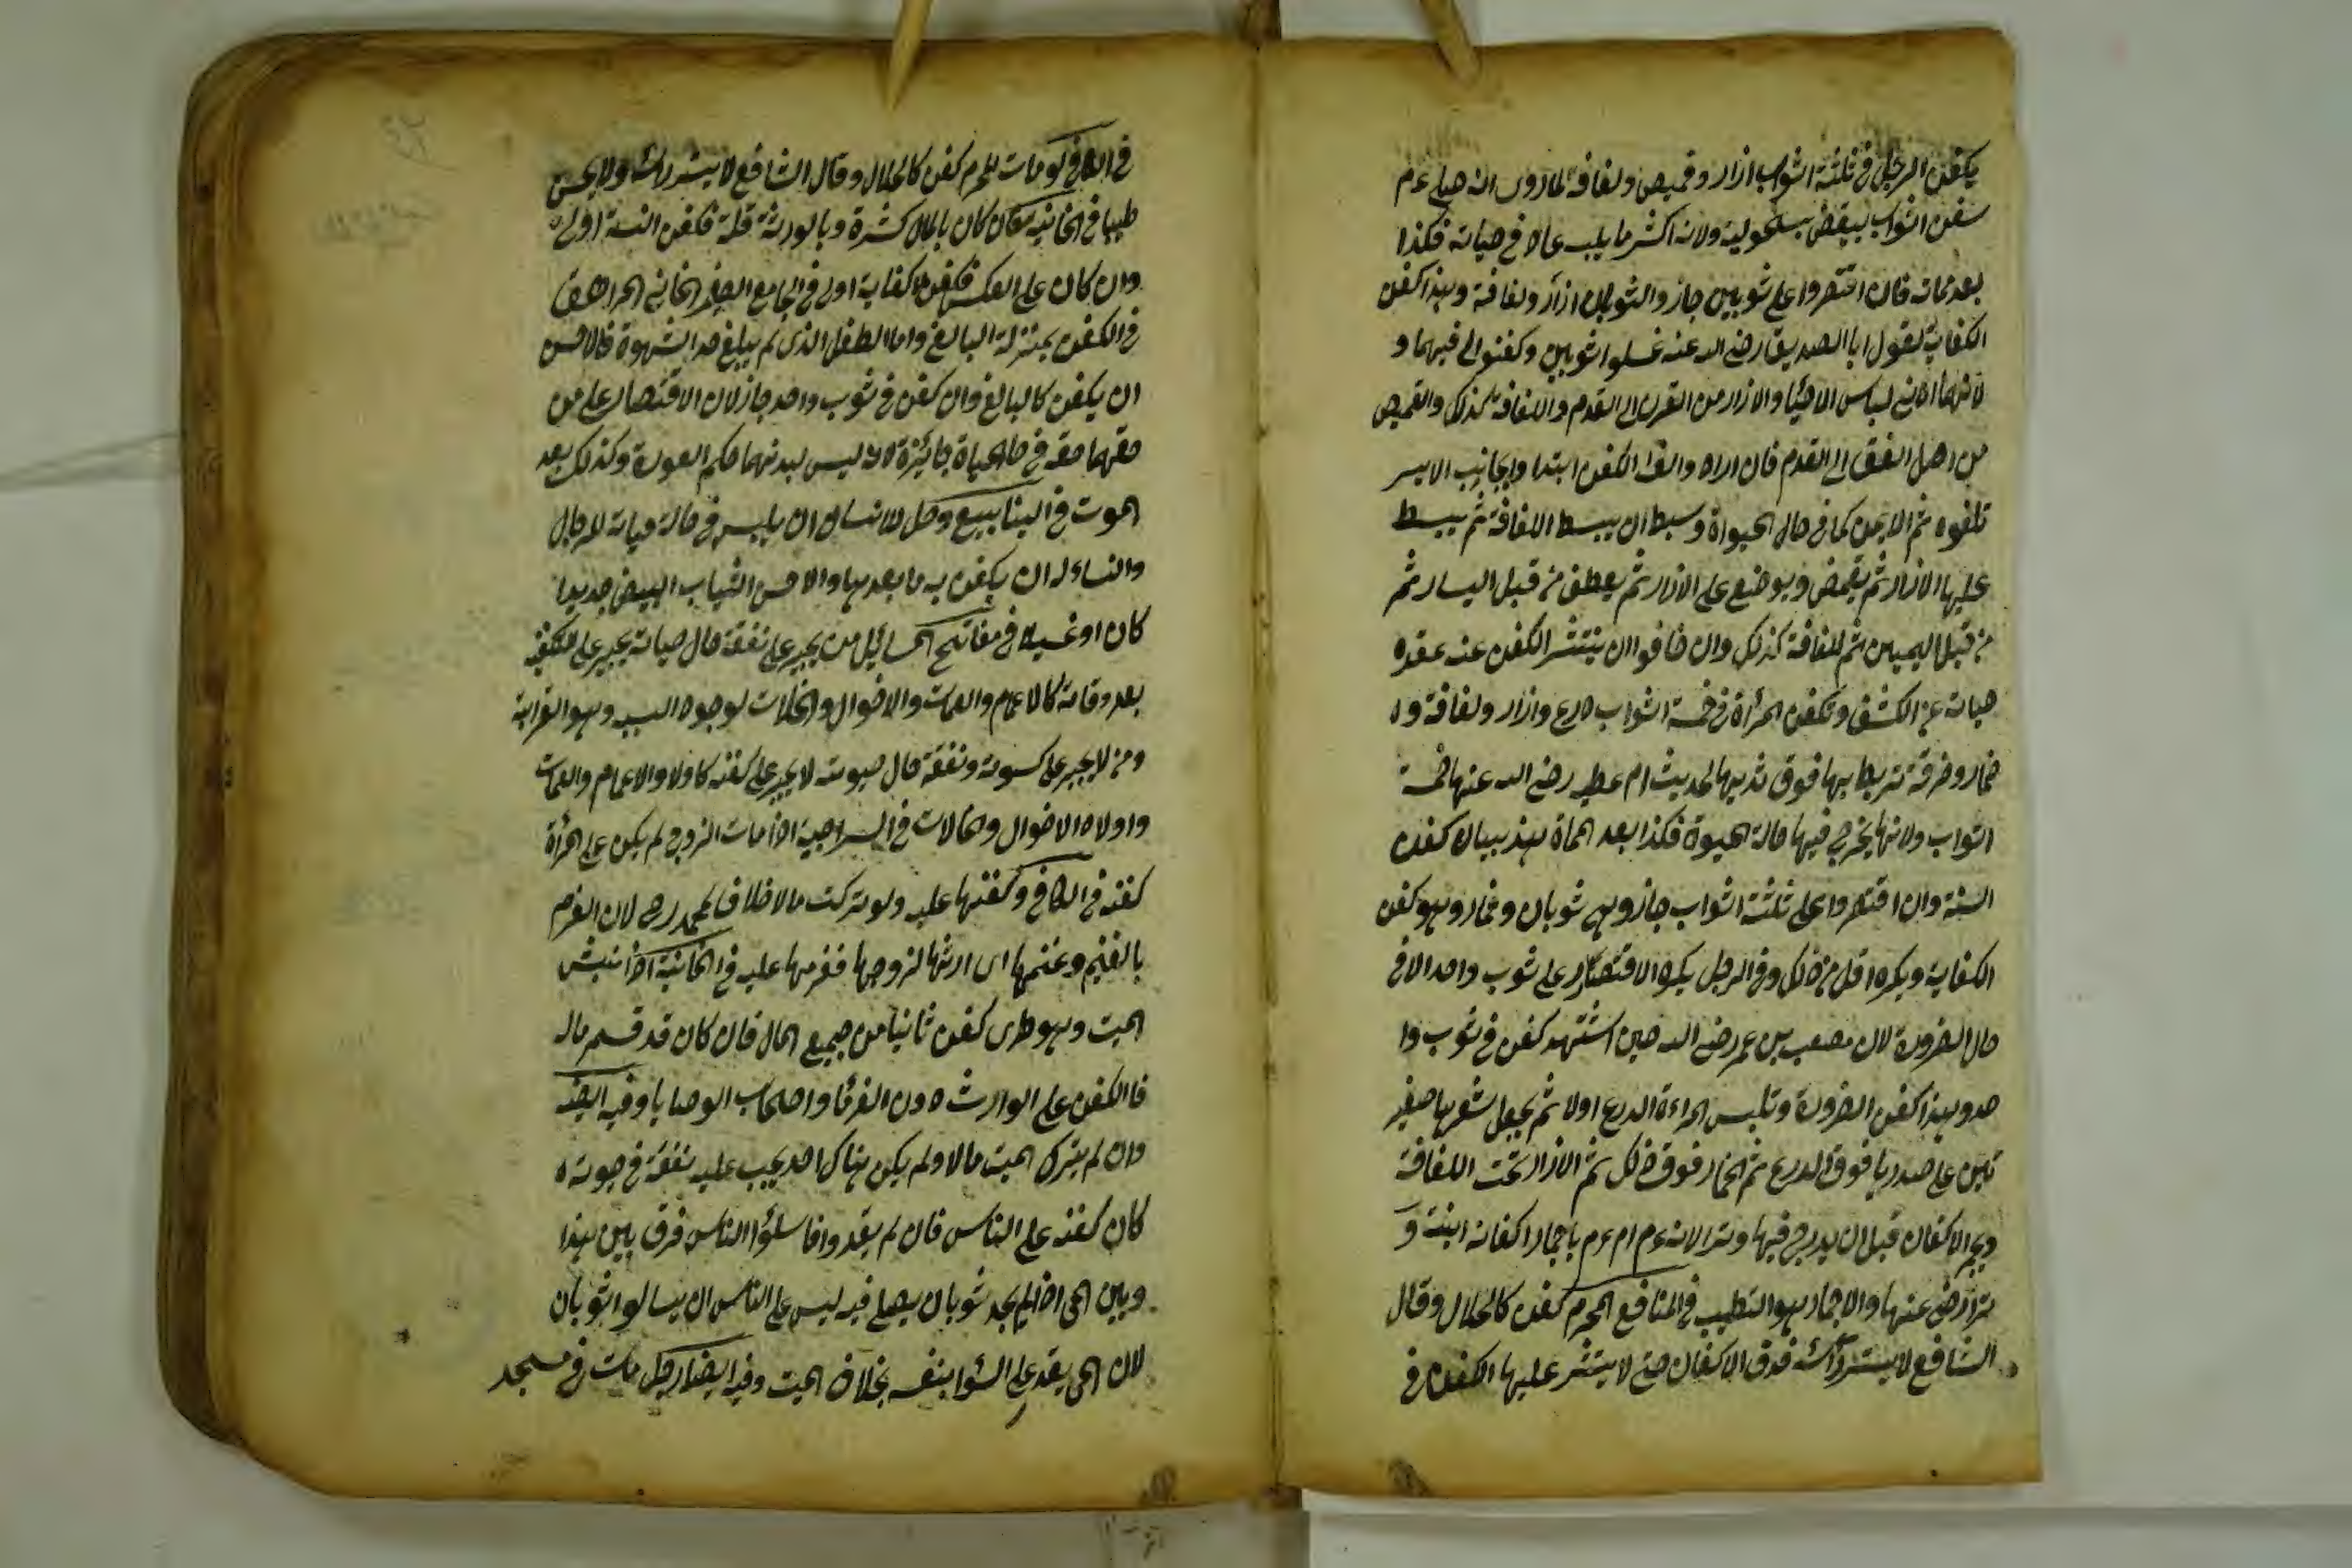 يكفن الرجل في ثلثة اثواب ازار وقميص ولفافة لما روى انه صلى ءم
كفن اثواب بيض سحولية ولانه اكثر ما يلبس عادة في حياته فكذا
بعد مماته فان اقتصروا على ثوبين جاز والثوبان ازار ولفافة وهذا كفن
الكفاية لقول ابا الصديق رضى الله عنه غسلوا ثوبين وكفنوني فيهما و
لانهما ادنى لباس الاحيا والازار من القرن الى القدم واللفافة كذلك والقميص
من اصل العنق الى القدم فان ارادوا لف الكفن ابتدا وبجانب الايسر
تلفوه ثم الايمن كما في حال الحيوة وبسط ان يبسط اللفافة ثم يبسط
عليها الازار ثم يقمص ويوضع على الازار ثم يعطف من قبل اليسار ثم
من قبل اليمين ثم للفافة كذلك وان خافوا ان ينتشر الكفن عنه عقده
صيانة عن الكشف وتكفن المرأة في خمسة اثواب درع وازار ولفافة و
خمار وخرقة تربط بها فوق ثديها لحديث ام عطيه رضى الله عنها خمسة
اثواب ولانها يخرج فيها حالة الحيوة فكذا بعد المماة هذ بيان كفن
السنة وان اقتصروا على ثلثة اثواب جاز وهي ثوبان وخمار وهو كفن
الكفاية ويكره اقل من ذلك وفي الرجل يكره الاقتصار على ثوب واحد الا في
حال الضرورة لان مصعب بن عمر رضى الله حين استشهد كفن في ثوب وا
حد وهذا كفن الضرورة وتلبس المراءة الدرع اولا ثم يجعل شعرها صفير
تين على صدرها فوق الدرع ثم الخمار فوق ذلك ثم الازار تحت اللفافة
ويجمر الاكفان قبل ان يدرج فيها وترا لانه ءم امر ءم باجمار اكفان ابنته و
ترا رضى عنها والاجمار هو التطيب في المنافع المحرم كفن كالحلال وقال
الشافع لا يستر رأسه فوق الاكفان حتى لا ينتشر عليها الكفن في
في الكافي لو مات المحرم كفن كالحلال وقال الشافع لا يستر رأسه ولا يمس
طيبا في الخانيه كان بالمال كثرة وبالورثة قلة فكفن السنة اولى
وان كان على العكس فكفن الكفاية اولى في الجامع الصغير الخاني المراهق
في الكفن بمنزلة البالغ واما الطفل الذي لم يبلغ حد الشهوة فالاحسن
ان يكفن كالبالغ وان كفن في ثوب واحد جاز لان الاقتصار على من
حقهما حقه في حال الحياة جائزة لانه ليس لبدنهما حكم العورة وكذلك بعد
الموت في الينابيع وكل للانسان ان يلبس في حالة حياته للرجال
والنساء له ان يكفن به ما بعدها والاحسن الثياب البيض جديدا
كان او غسيلا في مفاتيح المسائل من يجبر على نفقة حال حياته يجبر على تكفينه
بعد وفاته كالاعمام والعمات والاخوال والخالات لوجود السبب وهو القرابة
ومن لا يجبر على كسوته ونفقة حال حيوته لا يجبر على كفنه كاولاد الاعمام والعمات
واولاد الاخوال والخالات في السراجية اذا مات الزوج لم يكن على امرأة
كفنه في الكافي وكفنها عليه ولو تركت مالا خلاف لمحمد رح لان الغرم
بالغنم وغنمها اى ارثها لزوجها فغرمها عليه في الخانية اذا نبش
الميت وهو طرى كفن ثانيا من جميع المال فان كان قد قسم ماله
فالكفن على الوارث دون الغرما واصحاب الوصايا وفيه ايضه
وان لم يترك الميت مالا ولم يكن هناك احد يجب عليه نفقة في حيوته
كان كفنه على الناس فان لم يقدروا فا سلوا الناس فرق بين هذا
وبين الحى اذا لم يجد ثوبان يصلى فيه ليس على الناس ان يسالوا ثوبان
لان الحى يقدر على السؤا بنفسه بخلاف الميت وفيه ايضا رجل مات في مسجد